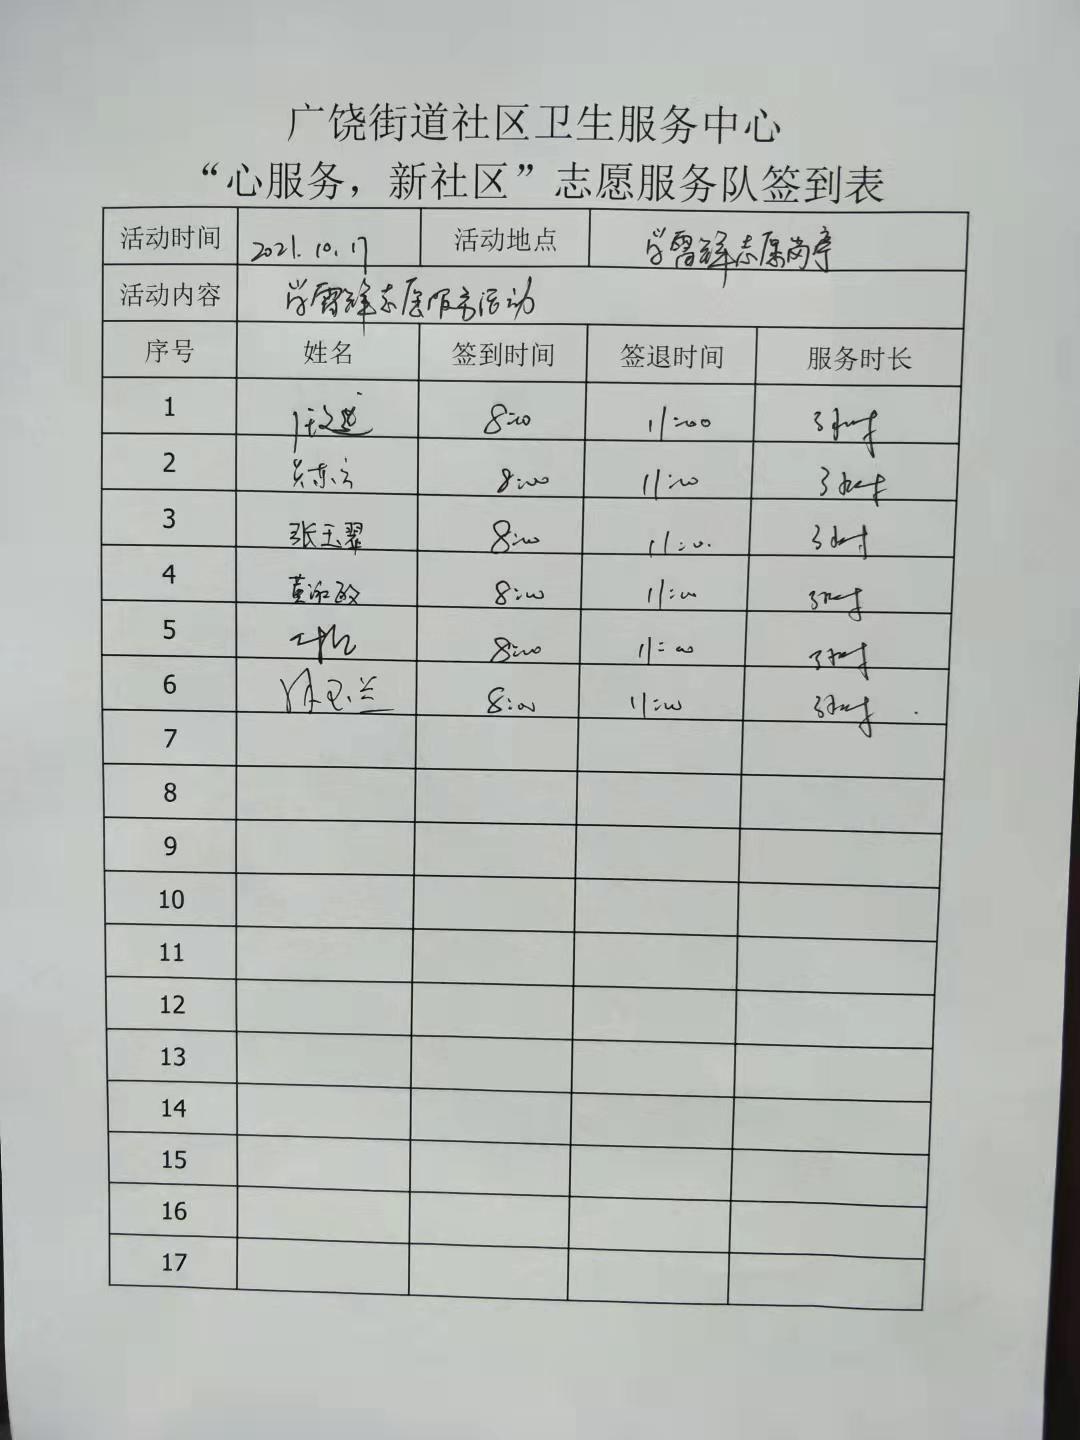 广饶街道社区卫生服务中心
“心服务，新社区”志愿服务队签到表
活动时间 2021.10.17 活动地点 学雷锋志愿岗亭
活动内容 学雷锋志愿服务活动
序号 姓名 签到时间 签退时间 服务时长
1 8:00 11:00 3小时
2 吴东云 8:00 11:00 3小时
3 张玉翠 8:00 11:00 3小时
4 8:00 11:00 3小时
5 8:00 11:00 3小时
6 8:00 11:00 3小时
7
8
9
10
11
12
13
14
15
16
17